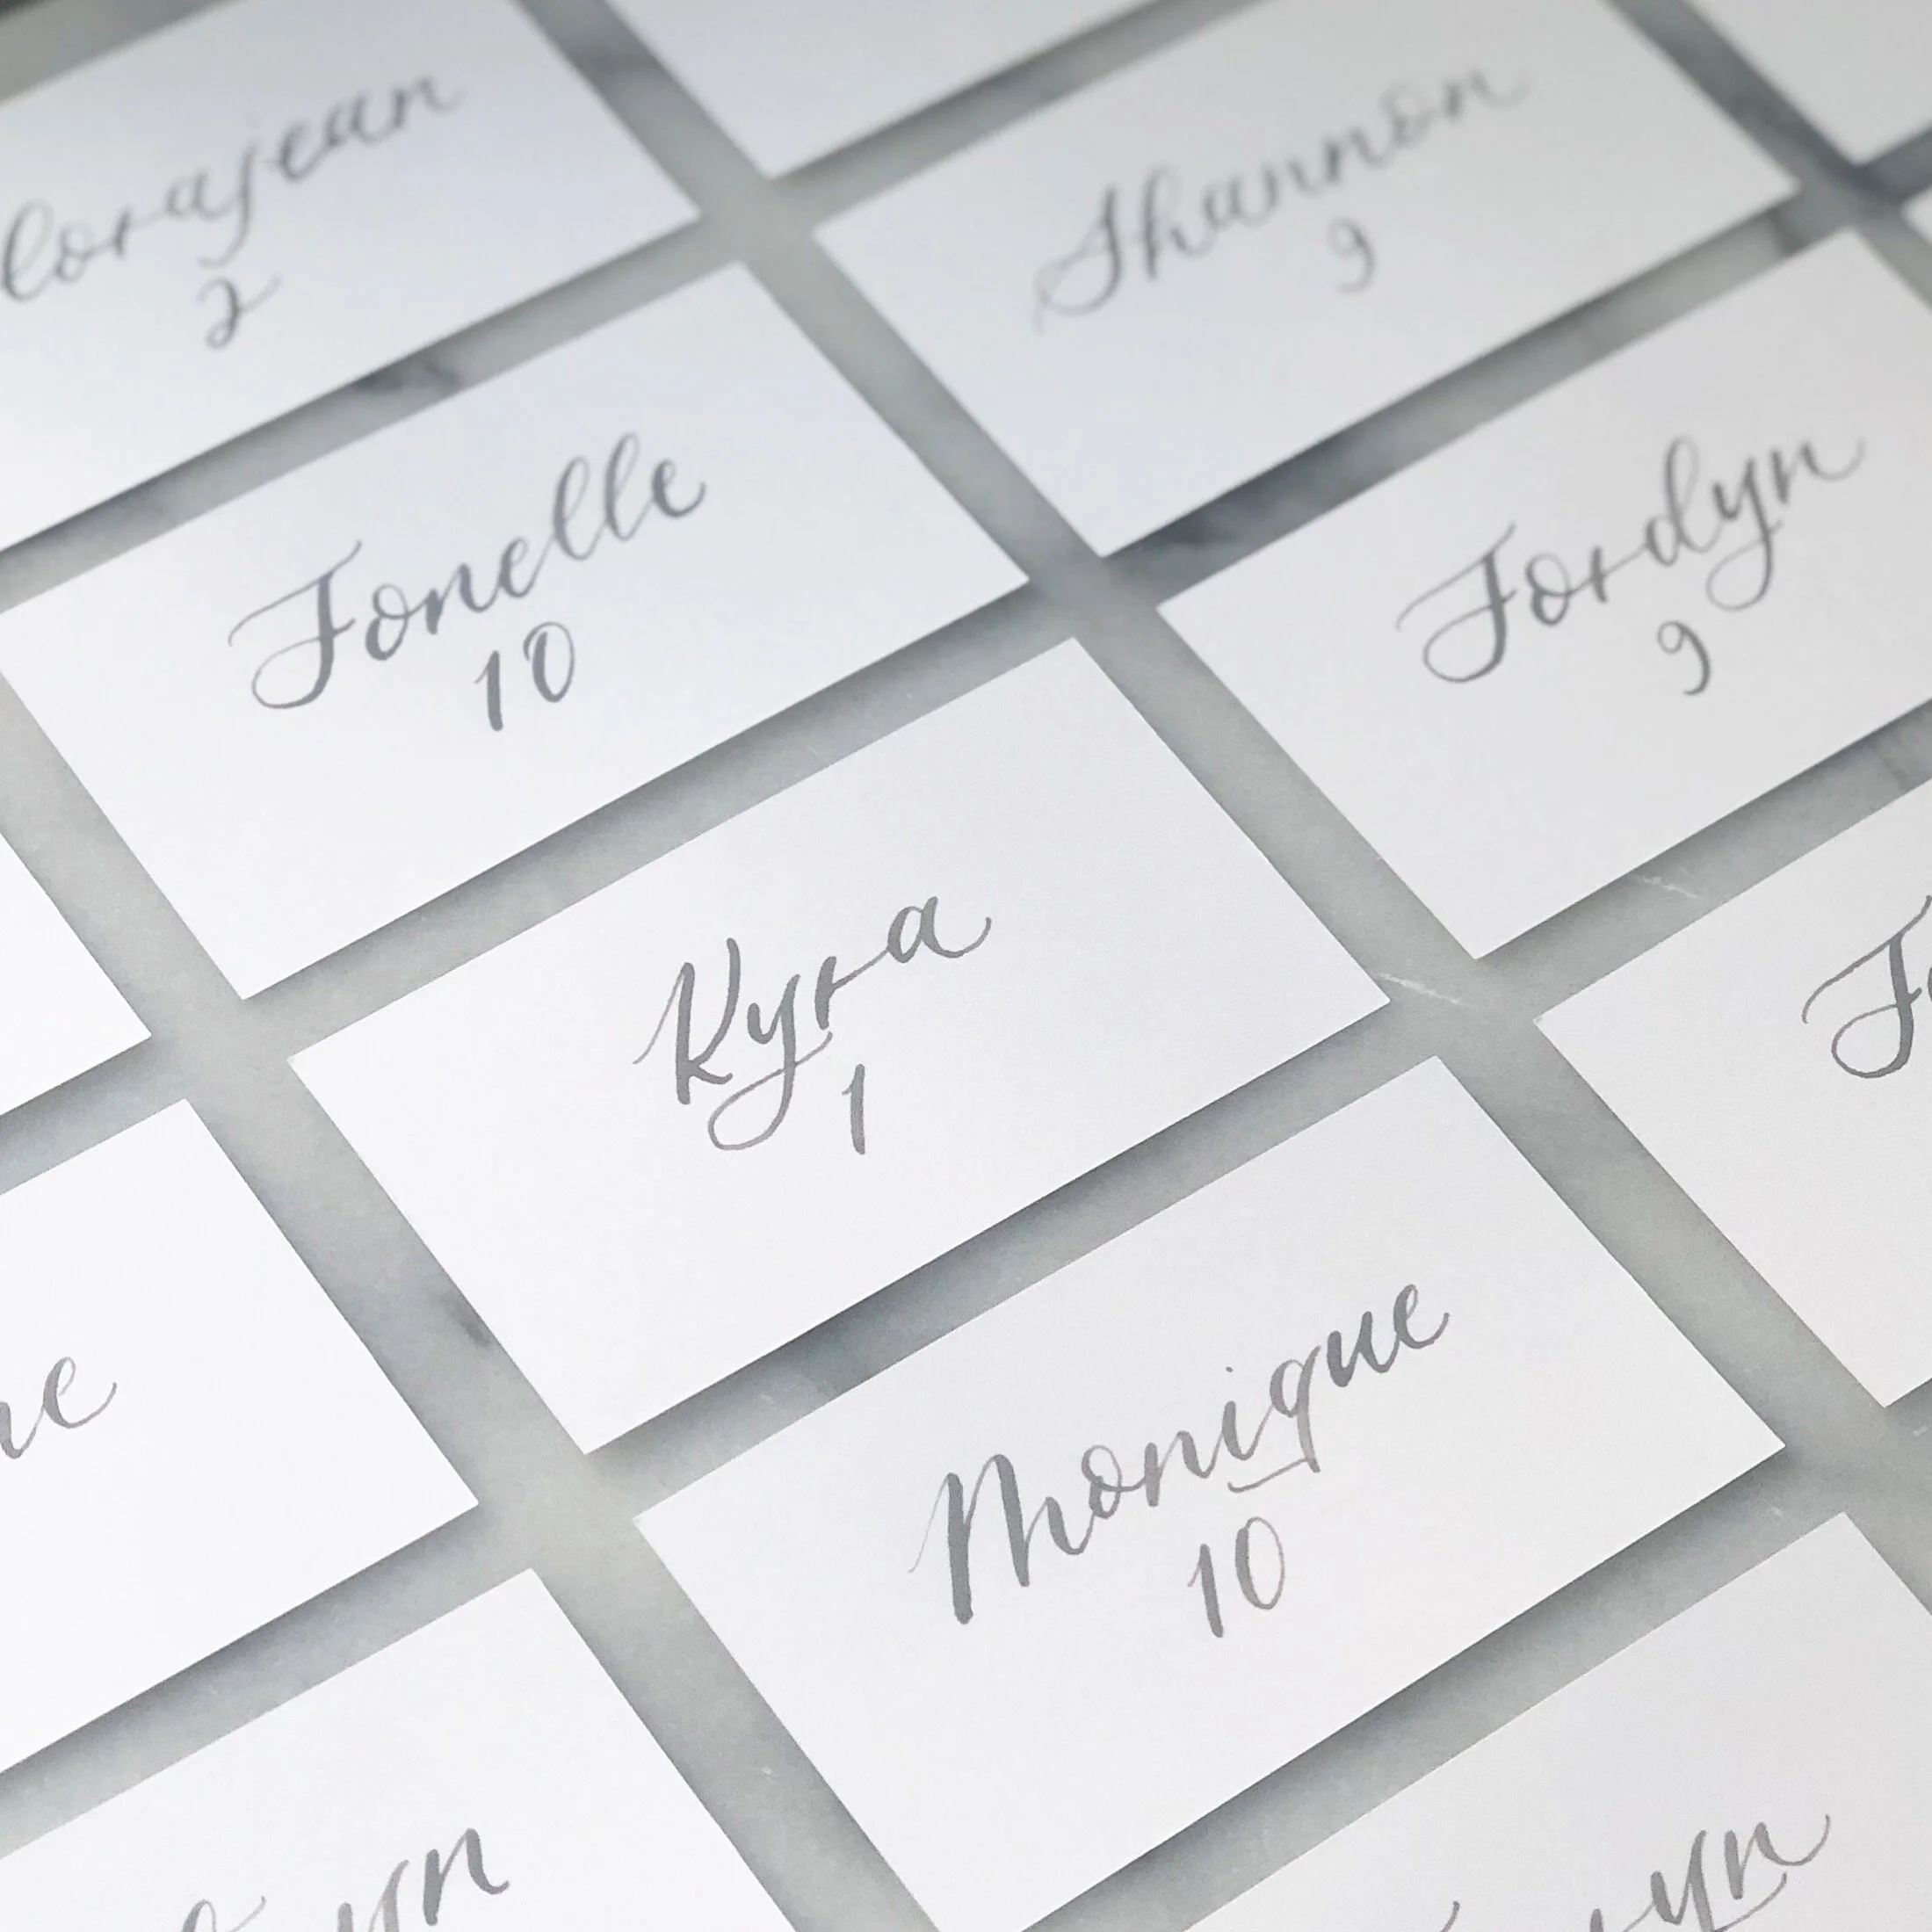 lorajean
2
Shannon
9
Jonelle
10
Jordyn
9
Kyra
1
Monique
10